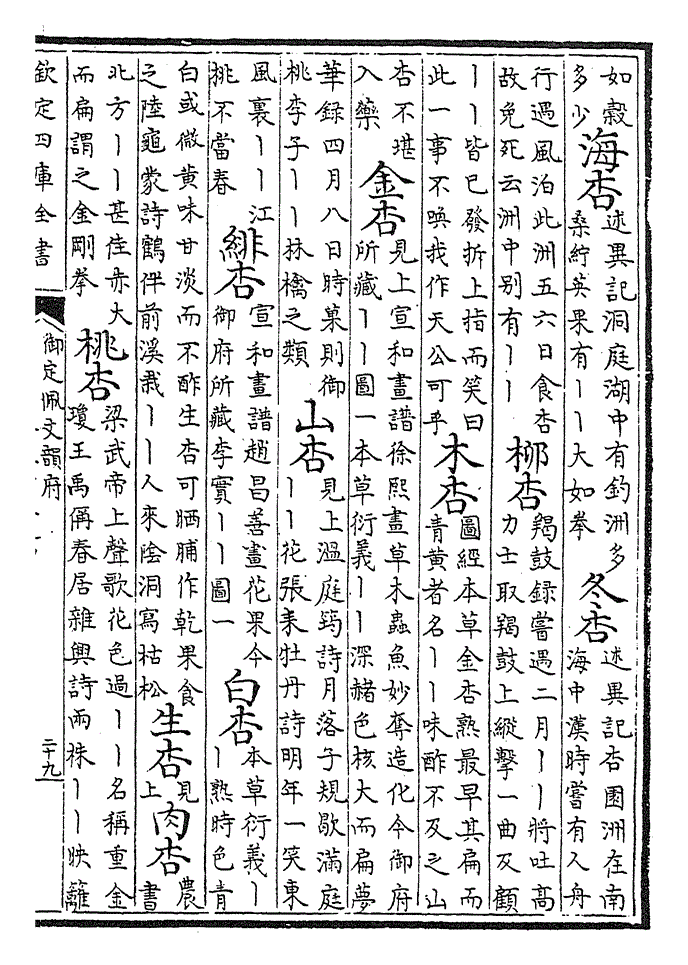 如穀
多少
海杏
述異記洞庭湖中有釣洲多
桑紵英果有丨丨大如拳
冬杏
述異記杏園洲在南
海中漢時嘗有人舟
行遇風泊此洲五六日食杏
故免死云洲中别有丨丨
栁杏
羯鼓録嘗遇二月丨丨將吐高
力士取羯鼓上縱擊一曲反顧
丨丨皆已發拆上指而笑曰
此一事不喚我作天公可乎
木杏
圖經本草金杏熟最早其扁而
青黄者名丨丨味酢不及之山
杏不堪
入藥
金杏
見上宣和畫譜徐熙畫草木蟲魚妙奪造化今御府
所藏丨丨圖一本草衍義丨丨深赭色核大而扁夢
華録四月八日時菓則御
桃李子丨丨林檎之類
山杏
見上溫庭筠詩月落子規歇滿庭
丨丨花張耒牡丹詩明年一笑東
風裏丨丨江
桃不當春
緋杏
宣和畫譜趙昌善畫花果今
御府所藏李實丨丨圖一
白杏
本草衍義丨
丨熟時色青
白或微黄味甘淡而不酢生杏可晒脯作乾果食
之陸龜蒙詩鶴伴前溪栽丨丨人來陰洞寫枯松
生杏
見
上
肉杏
農
書
北方丨丨甚佳赤大
而扁謂之金剛拳
桃杏
梁武帝上聲歌花色過丨丨名稱重金
瓊王禹偁春居雜興詩兩株丨丨映籬
欽定四庫全書
御定佩文韻府
二十九